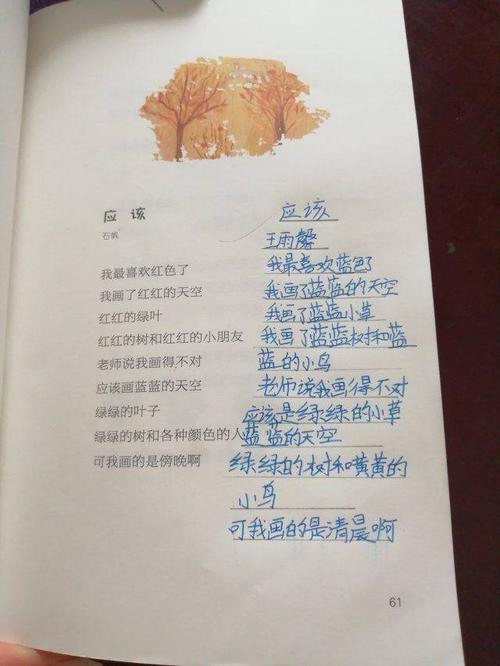 应该
石帆
我最喜欢红色了
我画了红红的天空
红红的绿叶
红红的树和红红的小朋友
老师说我画得不对
应该画蓝蓝的天空
绿绿的叶子
绿绿的树和各种颜色的人
可我画的是傍晚啊
应该
王雨馨
我最喜欢蓝色了
我画了蓝蓝的天空
我画了蓝蓝小草
我画了蓝蓝树和蓝
蓝的小鸟
老师说我画得不对
应该是绿绿的小草
蓝蓝的天空
绿绿的树和黄黄的
小鸟
可我画的是清晨啊
61